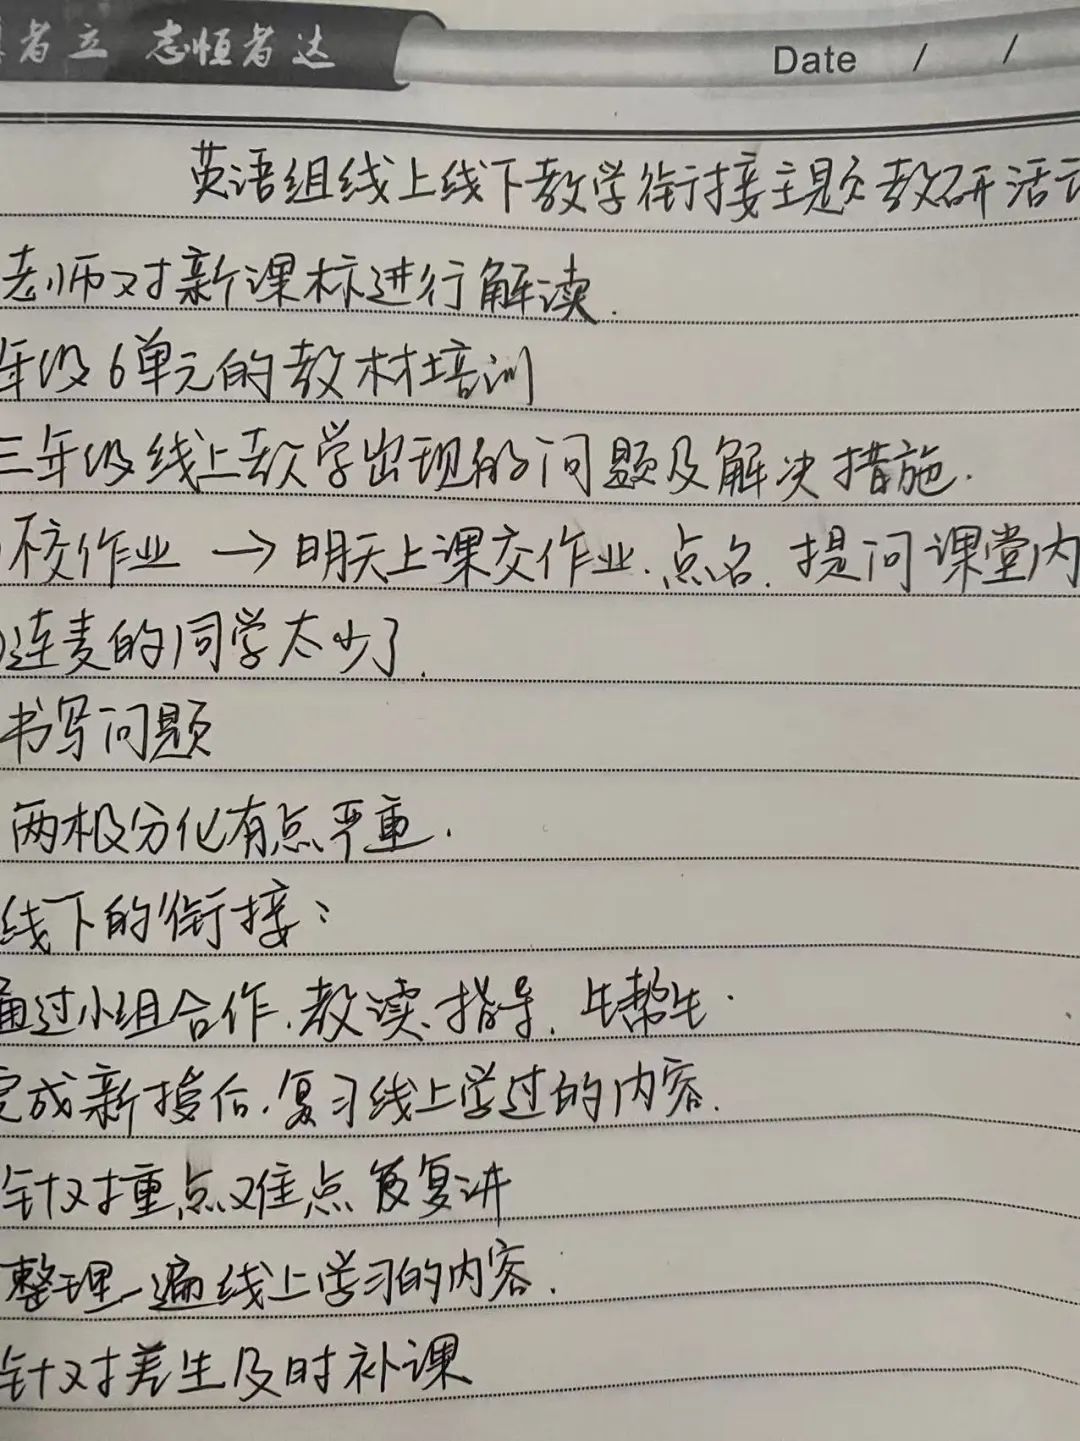 者立 志恒者达
Date / /
英语组线上线下教学衔接主题教研活动
老师对新课标进行解读.
年级6单元的教材培训
三年级线上教学出现的问题及解决措施.
不交作业 → 明天上课交作业.点名.提问课堂内
连麦的同学太少了.
书写问题
两极分化有点严重.
线下的衔接:
通过小组合作.教读.指导.生帮生.
完成新授后.复习线上学过的内容.
针对重点难点反复讲
整理一遍线上学习的内容.
针对差生及时补课